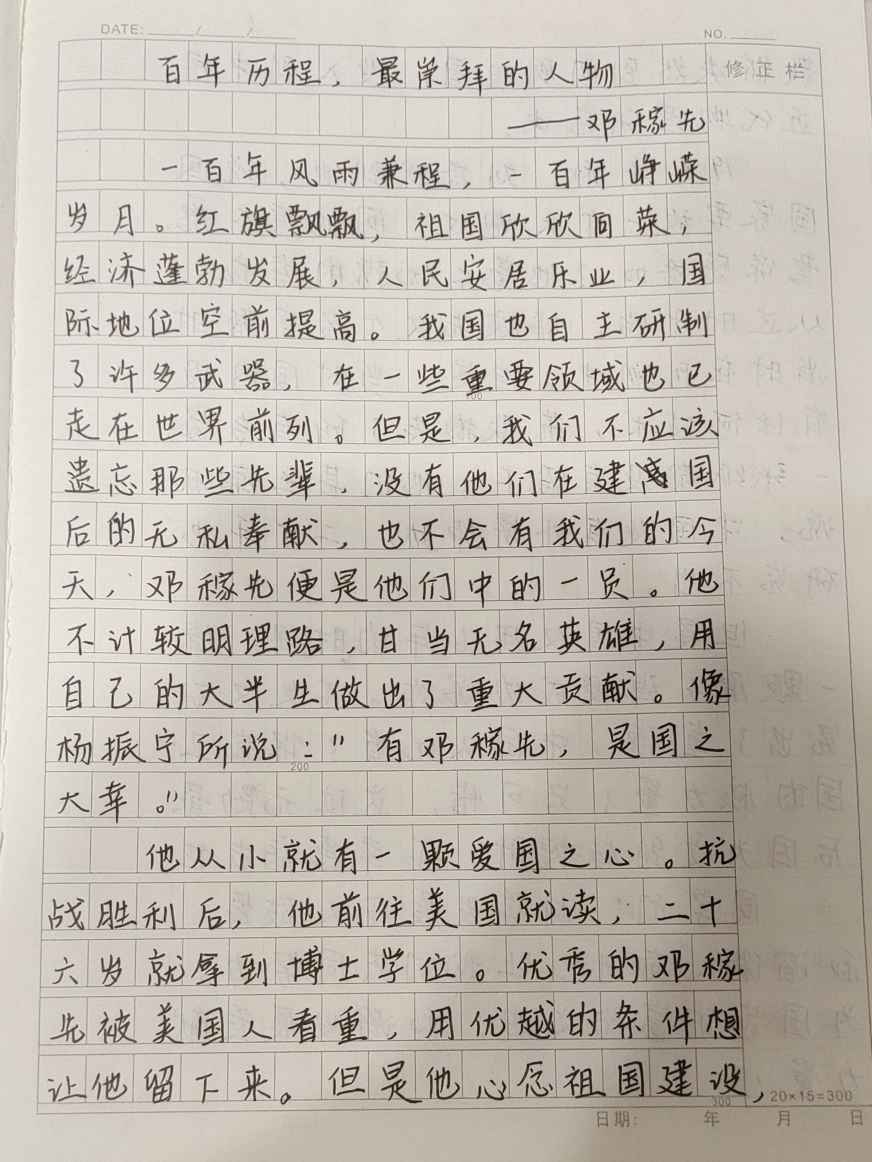 DATE: / /
NO.
百年历程，最崇拜的人物
修正栏
——邓稼先
一百年风雨兼程，一百年峥嵘
岁月。红旗飘飘，祖国欣欣向荣，
经济蓬勃发展，人民安居乐业，国
际地位空前提高。我国也自主研制
了许多武器，在一些重要领域也已
100
走在世界前列。但是，我们不应该
遗忘那些先辈，没有他们在建国
后的无私奉献，也不会有我们的今
天，邓稼先便是他们中的一员。他
不计较明理路，甘当无名英雄，用
自己的大半生做出了重大贡献。像
杨振宁所说："有邓稼先，是国之
200
大幸。"
他从小就有一颗爱国之心。抗
战胜利后，他前往美国就读，二十
六岁就拿到博士学位。优秀的邓稼
先被美国人看重，用优越的条件想
让他留下来。但是他心念祖国建设，
300
20×15=300
日期: 年 月 日